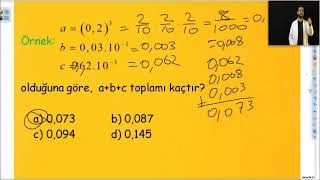 Örnek:
a = (0,2)³ = 2/10 2/10 2/10 = 8/1000 = 0,
b = 0,03.10⁻¹ = 0,003 = 0,008
c = 62.10⁻³ = 0,062
0,062
0,008
0,003
+
0,073
olduğuna göre, a+b+c toplamı kaçtır?
a) 0,073 b) 0,087
c) 0,094 d) 0,145